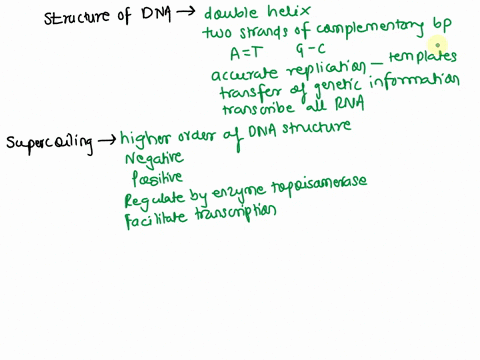 Structure of DNA → double helix
two strands of complementary bp
A=T G-C
accurate replication — templates
transfer of genetic information
transcribe all RNA
Supercoiling → higher order of DNA structure
Negative
Positive
Regulate by enzyme topoisamerase
Facilitate transcription